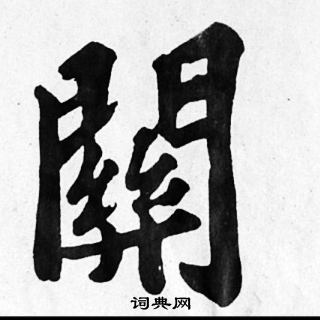 關
词典网